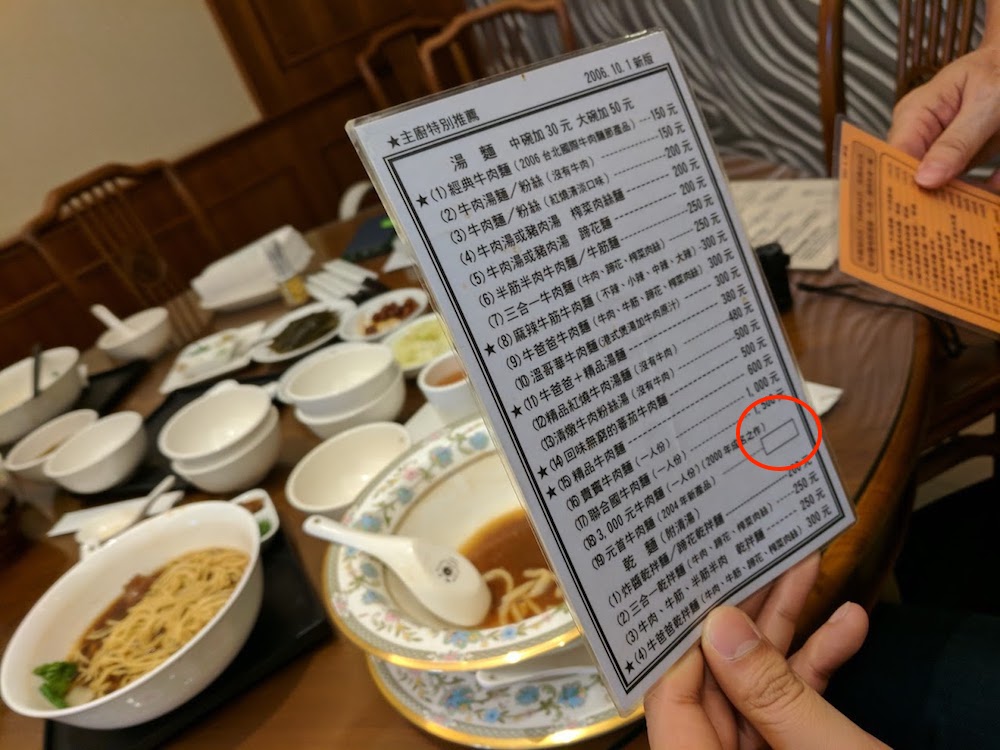 2006.10.1 新版
★主廚特別推薦
湯 麵 中碗加30元 大碗加50元
★(1)經典牛肉麵(2006台北國際牛肉麵節產品)---150元
(2)牛肉湯麵/粉絲(沒有牛肉)---150元
(3)牛肉麵/粉絲(紅燒清淡口味)---200元
(4)牛肉湯或豬肉湯 榨菜肉絲麵---200元
(5)牛肉湯或豬肉湯 蹄花麵---200元
(6)半筋半肉牛肉麵/牛筋麵---250元
(7)三合一牛肉麵(牛肉、蹄花、榨菜肉絲)---250元
★(8)麻辣牛筋牛肉麵(不辣、小辣、中辣、大辣)300元
(9)牛爸爸牛肉麵(牛肉、牛筋、蹄花、榨菜肉絲)300元
(10)溫哥華牛肉麵(港式煲湯加牛肉原汁)---300元
★(11)牛爸爸+精品湯麵---380元
(12)精品紅燒牛肉湯麵(沒有牛肉)---480元
(13)清燉牛肉粉絲湯(沒有牛肉)---500元
★(14)回味無窮的蕃茄牛肉麵---500元
★(15)精品牛肉麵---600元
(16)貴賓牛肉麵(一人份)---1,000元
(17)聯合國牛肉麵(一人份)---1,500元
(18)3,000元牛肉麵(一人份)(2000年成名之作)
(19)元首牛肉麵(2004年新產品)---
乾 麵 (附清湯)
(1)炸醬乾拌麵/蹄花乾拌麵---200元
(2)三合一乾拌麵(牛肉、蹄花、榨菜肉絲)---250元
(3)牛肉、牛筋、半筋半肉 乾拌麵---250元
★(4)牛爸爸乾拌麵(牛肉、牛筋、蹄花、榨菜肉絲)300元